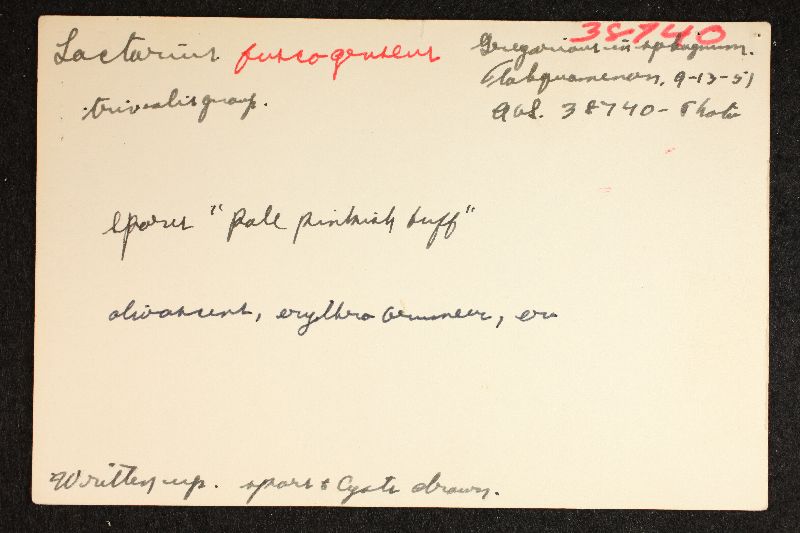 38740
Lactarius fuscogenseus
Gregarious in sphagnum.
trivialis group.
Tahquamenon, 9-13-51
AHS. 38740 - Photo
Spores "pale pinkish buff"
olivascens, erythro
Written up. spores & Cysts drawn.